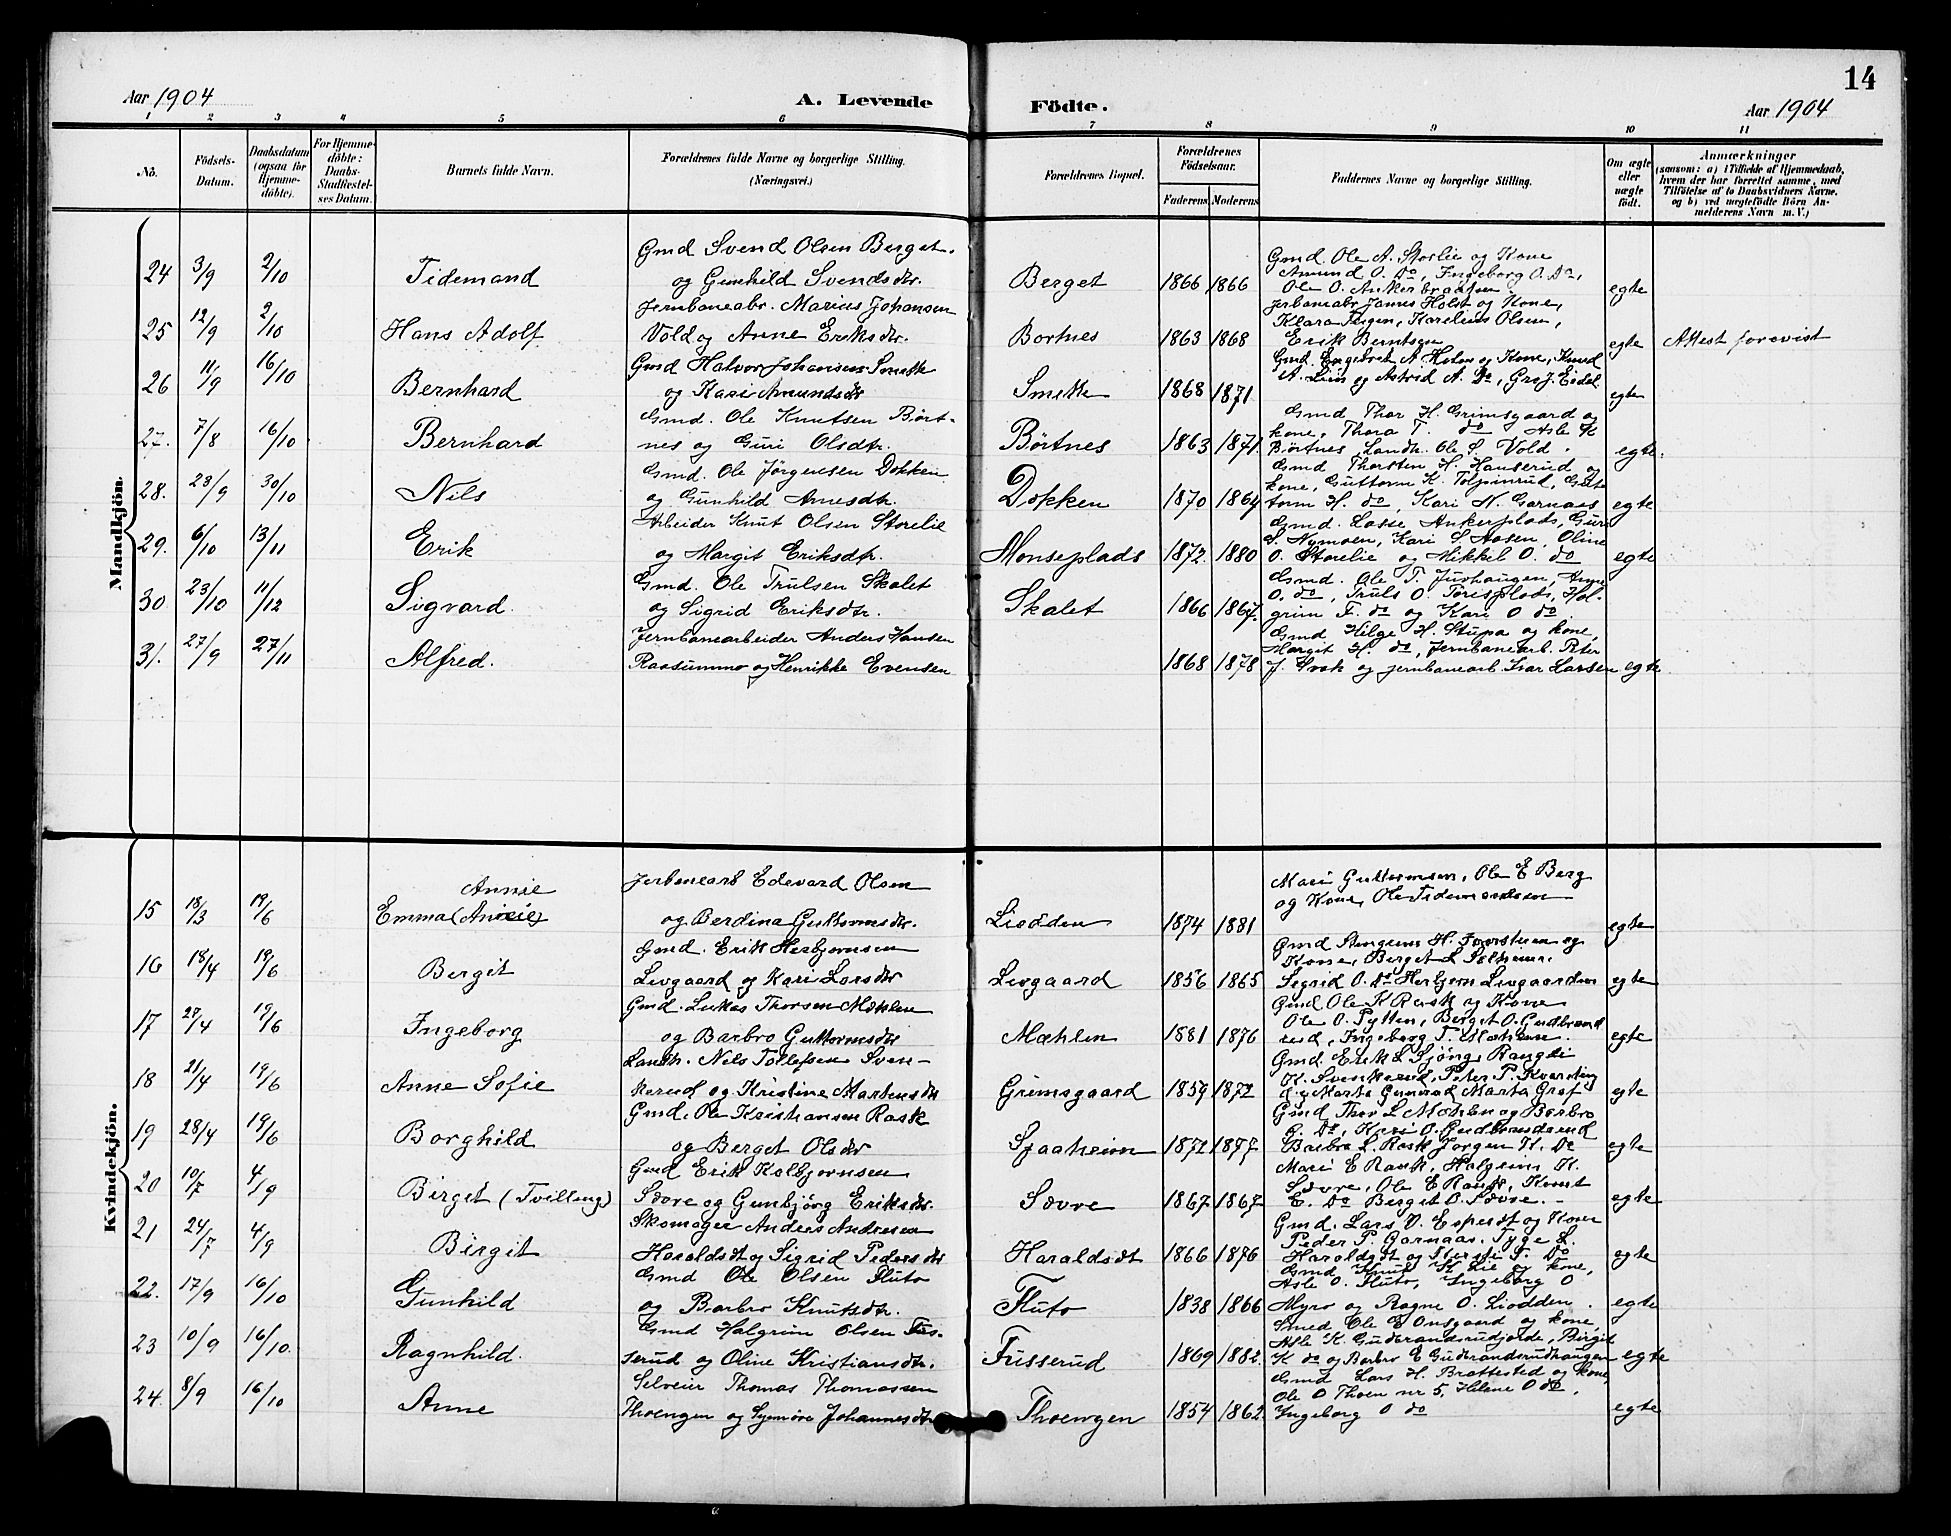 14
Aar 1904
A. Levende
Födte.
Aar 1904
1 2 3 4 5 6 7 8 9 10 11
No.
Födsels-Datum.
Daabsdatum (ogsaa for Hjemme-döbte).
For Hjemme-döbte: Daabs-Stadfæstel-ses Datum.
Barnets fulde Navn.
Forældrenes fulde Navne og borgerlige Stilling. (Næringsvei.)
Forældrenes Bopæl.
Forældrenes Födselsaar.
Faderens Moderens
Faddernes Navne og borgerlige Stilling.
Om ægte eller uægte födt.
Anmærkninger
(saasom: a) i Tilfælde af Hjemmedaab, hvem der har forrettet samme, med Tilföielse af to Daabsvidners Navne, og b) ved uægtefödte Börn An-melderens Navn m. V.)
Mandkjön.
24 3/9 2/10 Tidemand
Gmd Svend Olsen Berget.
og Gunhild Svendsdtr.
Berget 1866 1866
Gmd Ole A. Storlie og Kone
Amund O. Do, Ingeborg O. Do,
Ole O. Ankerbraaten.
egte
25 12/9 2/10 Hans Adolf
Jernbaneabr. Marius Johansen
Vold og Anne Eriksdtr.
Bortnes 1863 1868
Jerbaneabr James Holst og Kone,
Klara Tergen, Karelius Olsen,
Erik Berntsen
egte Attest forevist
26 11/9 16/10 Bernhard
Gmd Halvor Johansen Smette
og Kari Amundsdtr
Smette 1868 1871
Gmd. Engebret A. og Kone, Knud
A. Liin og Astrid A. Do, Gro J. Eidal
egte
27. 7/8 16/10 Bernhard
Gmd. Ole Knutsen Bört-
nes og Guri Olsdtr.
Börtnes 1863 1871.
Gmd Thor H. Grimsgaard og
kone, Thora T. do Asle K
Börtnes Landh. Ole S. Vold.
egte.
28. 23/9 30/10 Nils
Gmd. Ole Jörgensen Dokken
og Gunhild Arnesdtr.
Dokken 1870 1864
Gmd Thorsten H. Hanserud og
kone, Guttorm K. Tolpinrud, Gut-
torm H. do, Kari N. Garnaas
egte
29. 6/10 13/11 Erik
Arbeider Knut Olsen Storelie
og Margit Eriksdtr.
Monseplads 1872. 1880
Gmd. Lasse Ankerplads, Guri
S. Nymoen, Kari S Aasen, Oline
O. Storelie og Mikkil O. do
egte
30. 23/10 11/12 Sigvard.
Gmd. Ole Trulsen Skalet
og Sigrid Eriksdtr.
Skalet 1866 1867.
Gmd. Ole T. Juvhaugen, Anne
O. do, Truls O. Torisplads, Hol-
grim T. do og Kari O do.
31. 27/9 27/11 Alfred.
Jernbanearbeider Anders Hansen
Raasummo og Henrikke Evensen
1868 1878
Gmd Helge H. Stupa og kone,
Margit H. do, Jernbanearb. Peter
J. Svak og jernbanearb. Ivar Larsen
egte
Kvindekjön.
15 18/3 19/6 Annie
Emma (Annie)
Jerbanearb Edevard Olsen
og Berdina Guttormsdtr.
Liodden 1874 1881
Mari Guttormsen, Ole E Berg
og Kone, Ole Tidemandsen
egte
16 18/4 19/6 Bergit
Gmd. Erik Herbjornsen
Levgaard og Kari Larsdtr
Levgaard 1856 1865
Gmd H. og
Kone, Berget L
Sigrid O. Do Herbjorn Levgaardsen
egte
17 27/4 19/6 Ingeborg
Gmd. Lukas Thorsen Mæhlen
og Barbro Guttormsdtr
Mæhlen 1881 1876
Gmd Ole K Rask og Kone
Ole O. Pytten, Berget O. Gudbrand
rud, Ingeborg T. Mæhlen.
egte
18 21/4 19/6 Anne Sofie
Landh. Nils Tollefsen Sven-
kerud og Kristine Martensdtr
Grimsgaard 1859 1872
Gmd. Erik L Rangdi
K. Svenkerud, Peter P.
og Marta Marta Graf
egte
19 28/4 19/6 Borghild
Gmd. Ole Kristiansen Rask
og Berget Olsdtr
Sjaaheim 1871 1877
Gmd Thor L Mæhlen og Barbro
G. Do, Kari O. Gudbrandsrud
Barbro L. Rask Jorgen K. Do
egte
20 10/7 4/9 Birget (Tvilling)
Gmd Erik Kolbjornsen
Sævre og Gunbjörg Eriksdtr.
Sævre 1867 1867
Mari E Rauk, Holgrim K.
Sævre, Ole E Knut
E. Do Berget O. Sævre.
egte
21 24/7 4/9 Birgit
Skomager Anders Andersen
Haraldsdt og Sigrid Pedersdtr
Haraldsdt 1866 1876
Gmd. Lars O. og Kone
Peder P. Garnaas. Tyge L.
Haraldsdt og T. Do
egte
22. 17/9 16/10 Gunhild
Gmd Ole Olsen Fluto
og Barbro Knutsdtr.
Fluto 1838 1866
Gmd Knut K Lie og kone,
Asle O. Fluto, Ingeborg O
Myro og Ragne O. Liodden.
egte
23 10/9 16/10. Ragnhild.
Gmd Halgrim Olsen Fus-
serud og Oline Kristiansdtr.
Fusserud 1869 1882.
Smed Ole E Onsgaard og kone,
Asle K. Gudbrandsrudjorde, Birgit
K do og Barbro E Gudbrandsrudhaugen
egte
24. 8/9 16/10 Anne
Selveier Thomas Thomassen
Thoengen og Synnöve Johannesdtr.
Thoengen 1854 1862.
Gmd Lars H. Brattested og kone,
Ole O Thoen nr 5, Helene O do,
Ingeborg O do
egte